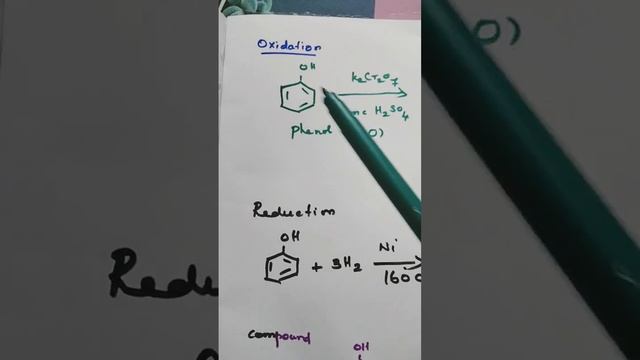 Oxidation
OH
K2Cr2O7
H2SO4
phenol
O)
Reduction
OH
+ 3H2
Ni
160
compound
OH